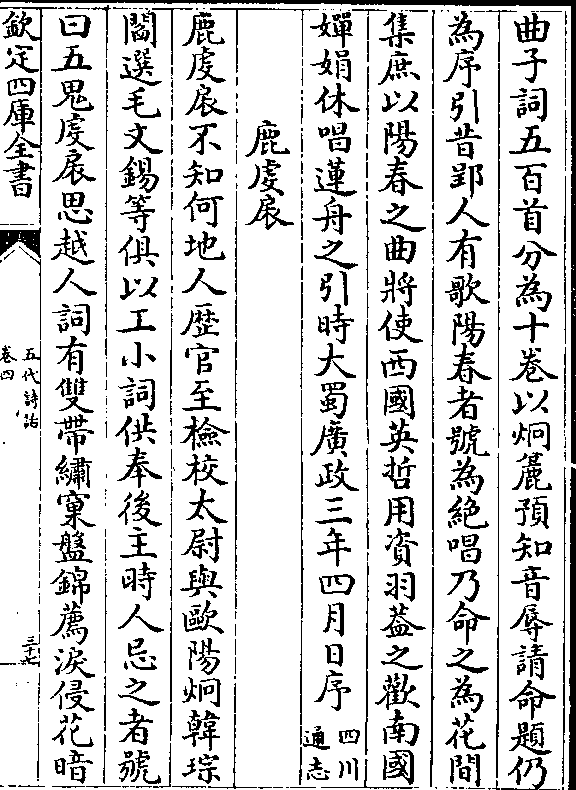 曲子詞五百首分為十卷以炯麄預知音辱請命題仍
為序引昔郢人有歌陽春者號為絶唱乃命之為花間
集庶以陽春之曲將使西國英哲用資羽葢之歡南國
嬋娟休唱蓮舟之引時大蜀廣政三年四月日序
四川
通志
鹿虔扆
鹿虔扆不知何地人歴官至檢校太尉與歐陽炯韓琮
閻選毛文錫等俱以工小詞供奉後主時人忌之者號
曰五鬼虔扆思越人詞有雙帶繡窠盤錦薦淚侵花暗
欽定四庫全書
五代詩話
卷四
三十七